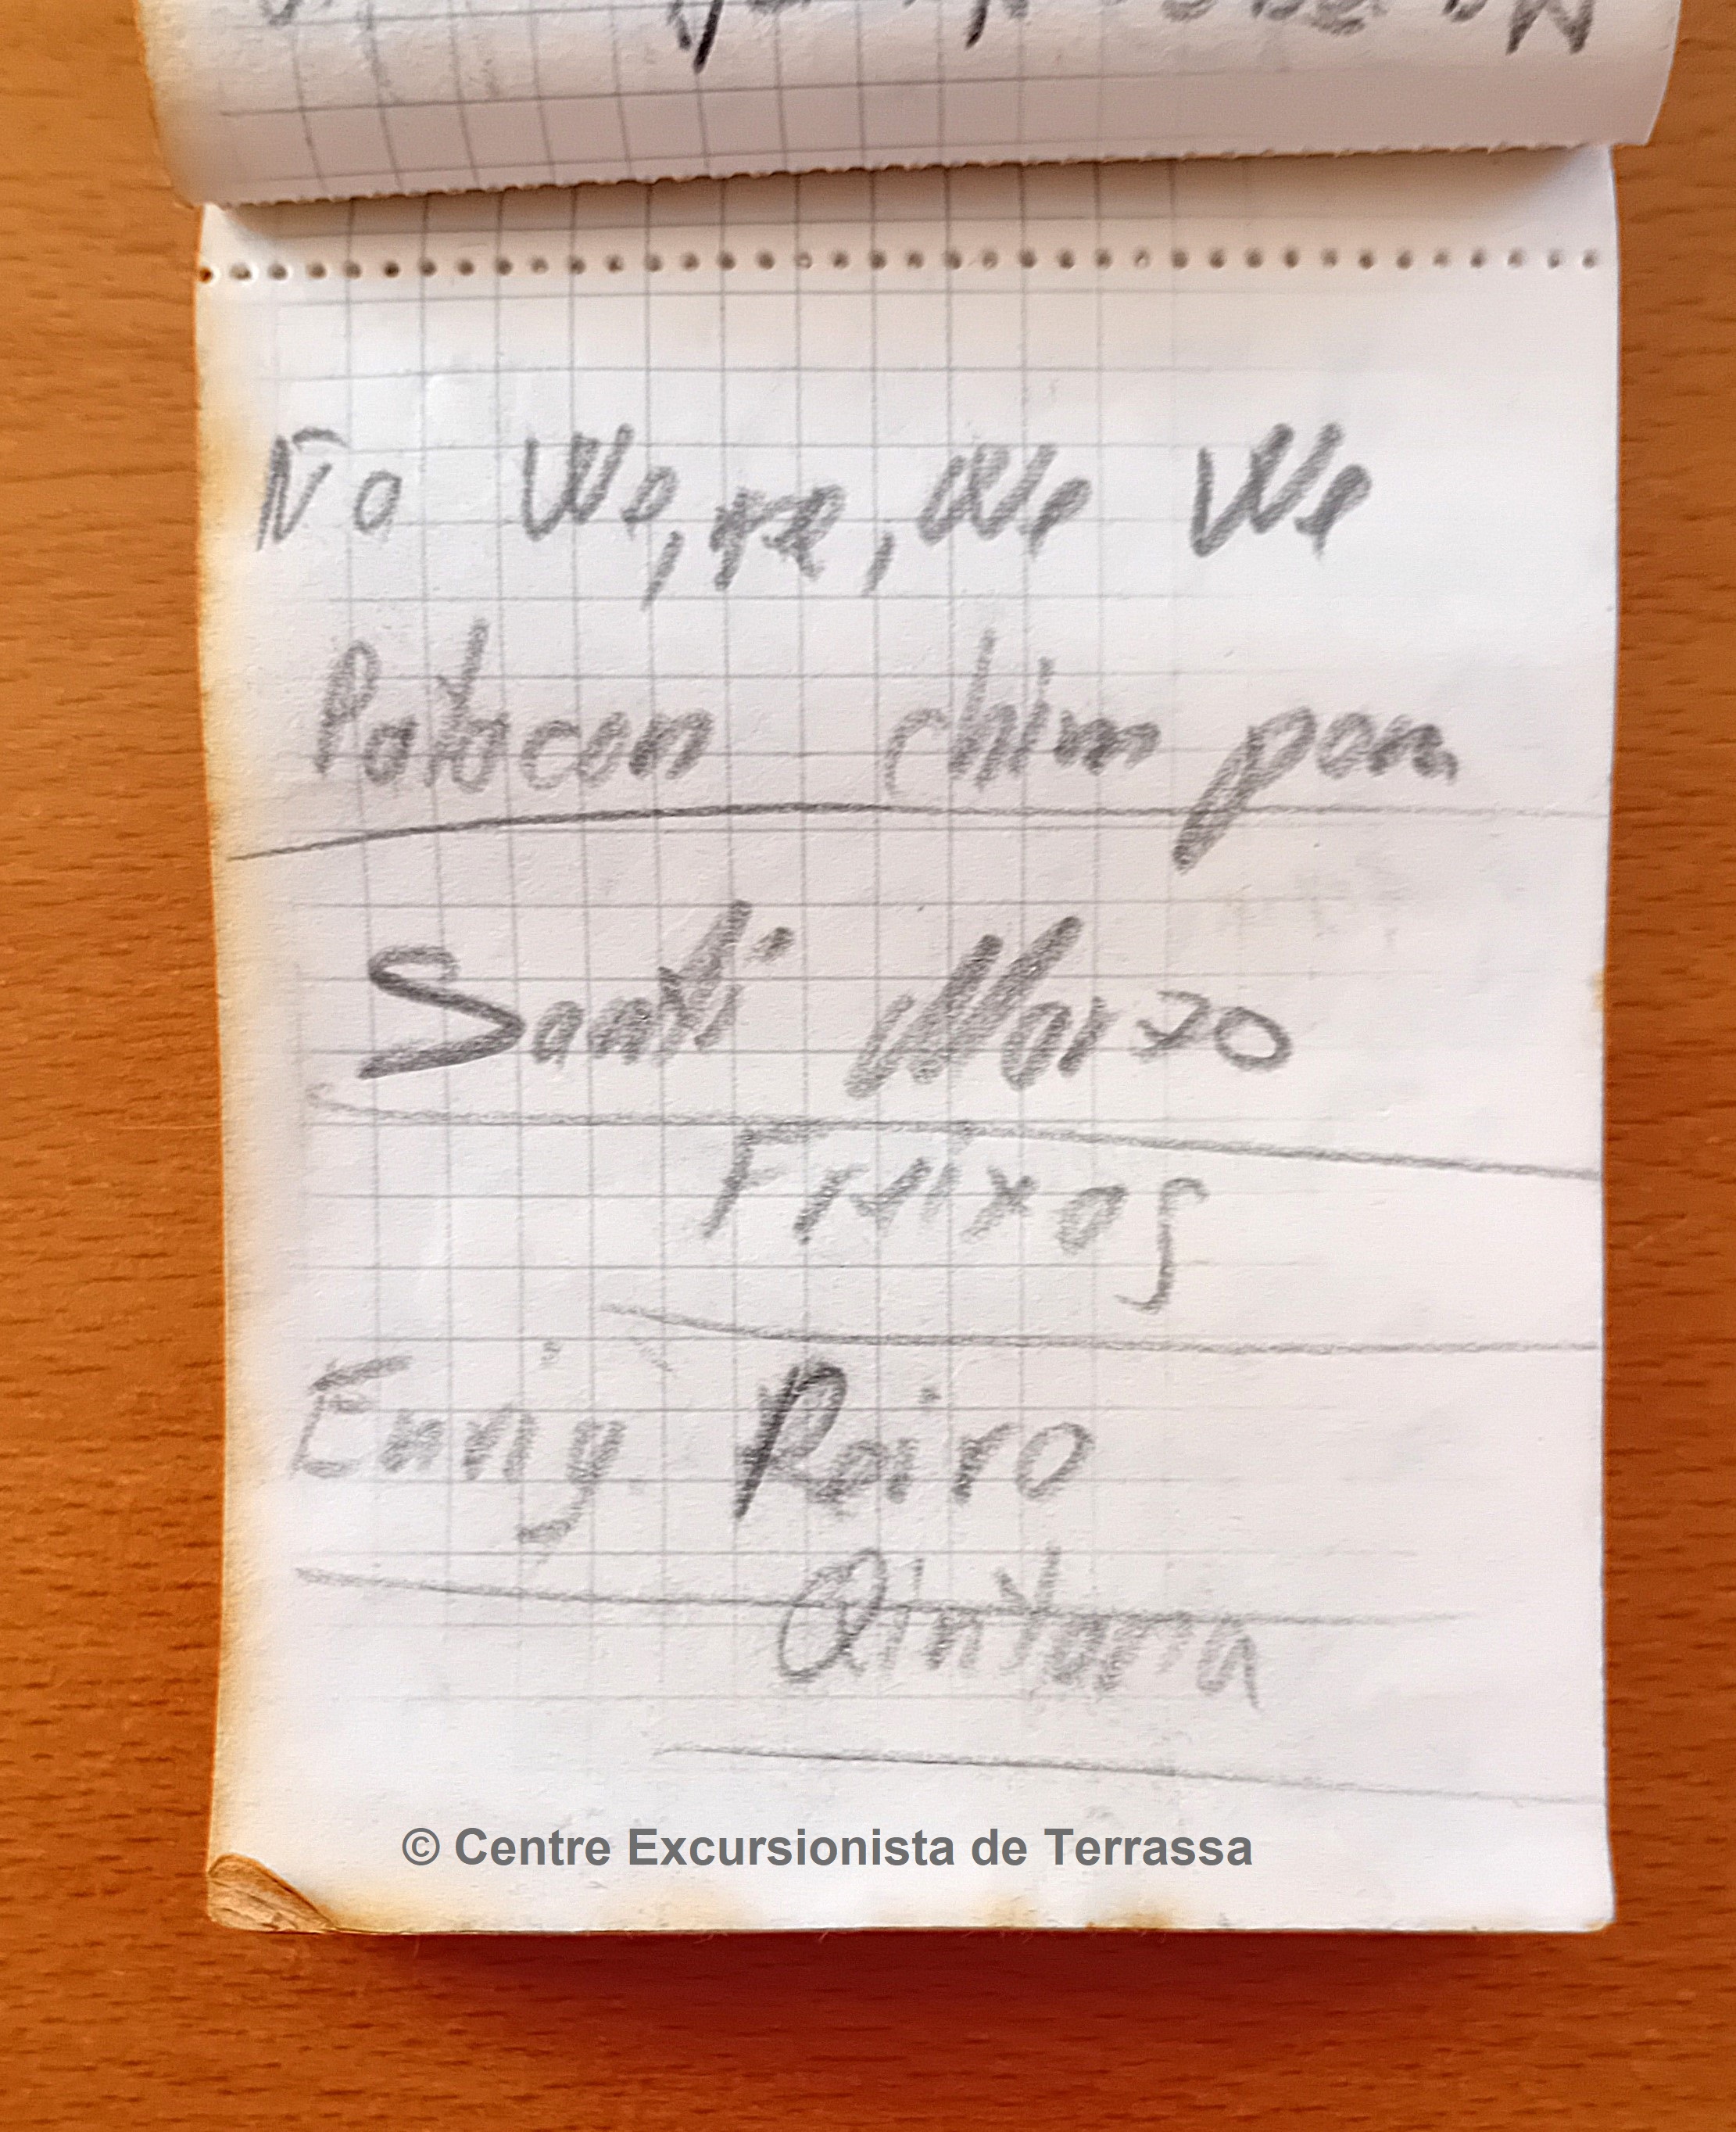 No We, ye, We We
Patacon chim pon
Santi Marzo
Freixas
Enny Reiro
Qintana
© Centre Excursionista de Terrassa